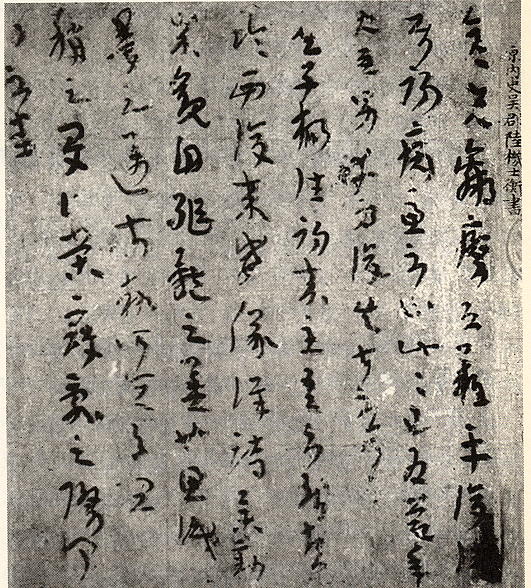 晉内史吴郡陸機士衡書
彦先羸瘵恐難平復往
屬初病慮不止此此已為慶承
使男幸為復失前憂耳
子楊往初來主吾不能盡
臨西復來威儀詳跱舉動
成觀自軀體之美也思識
量之邁前執所恒有宜
稱之夏榮寇亂之際聞
問不悉